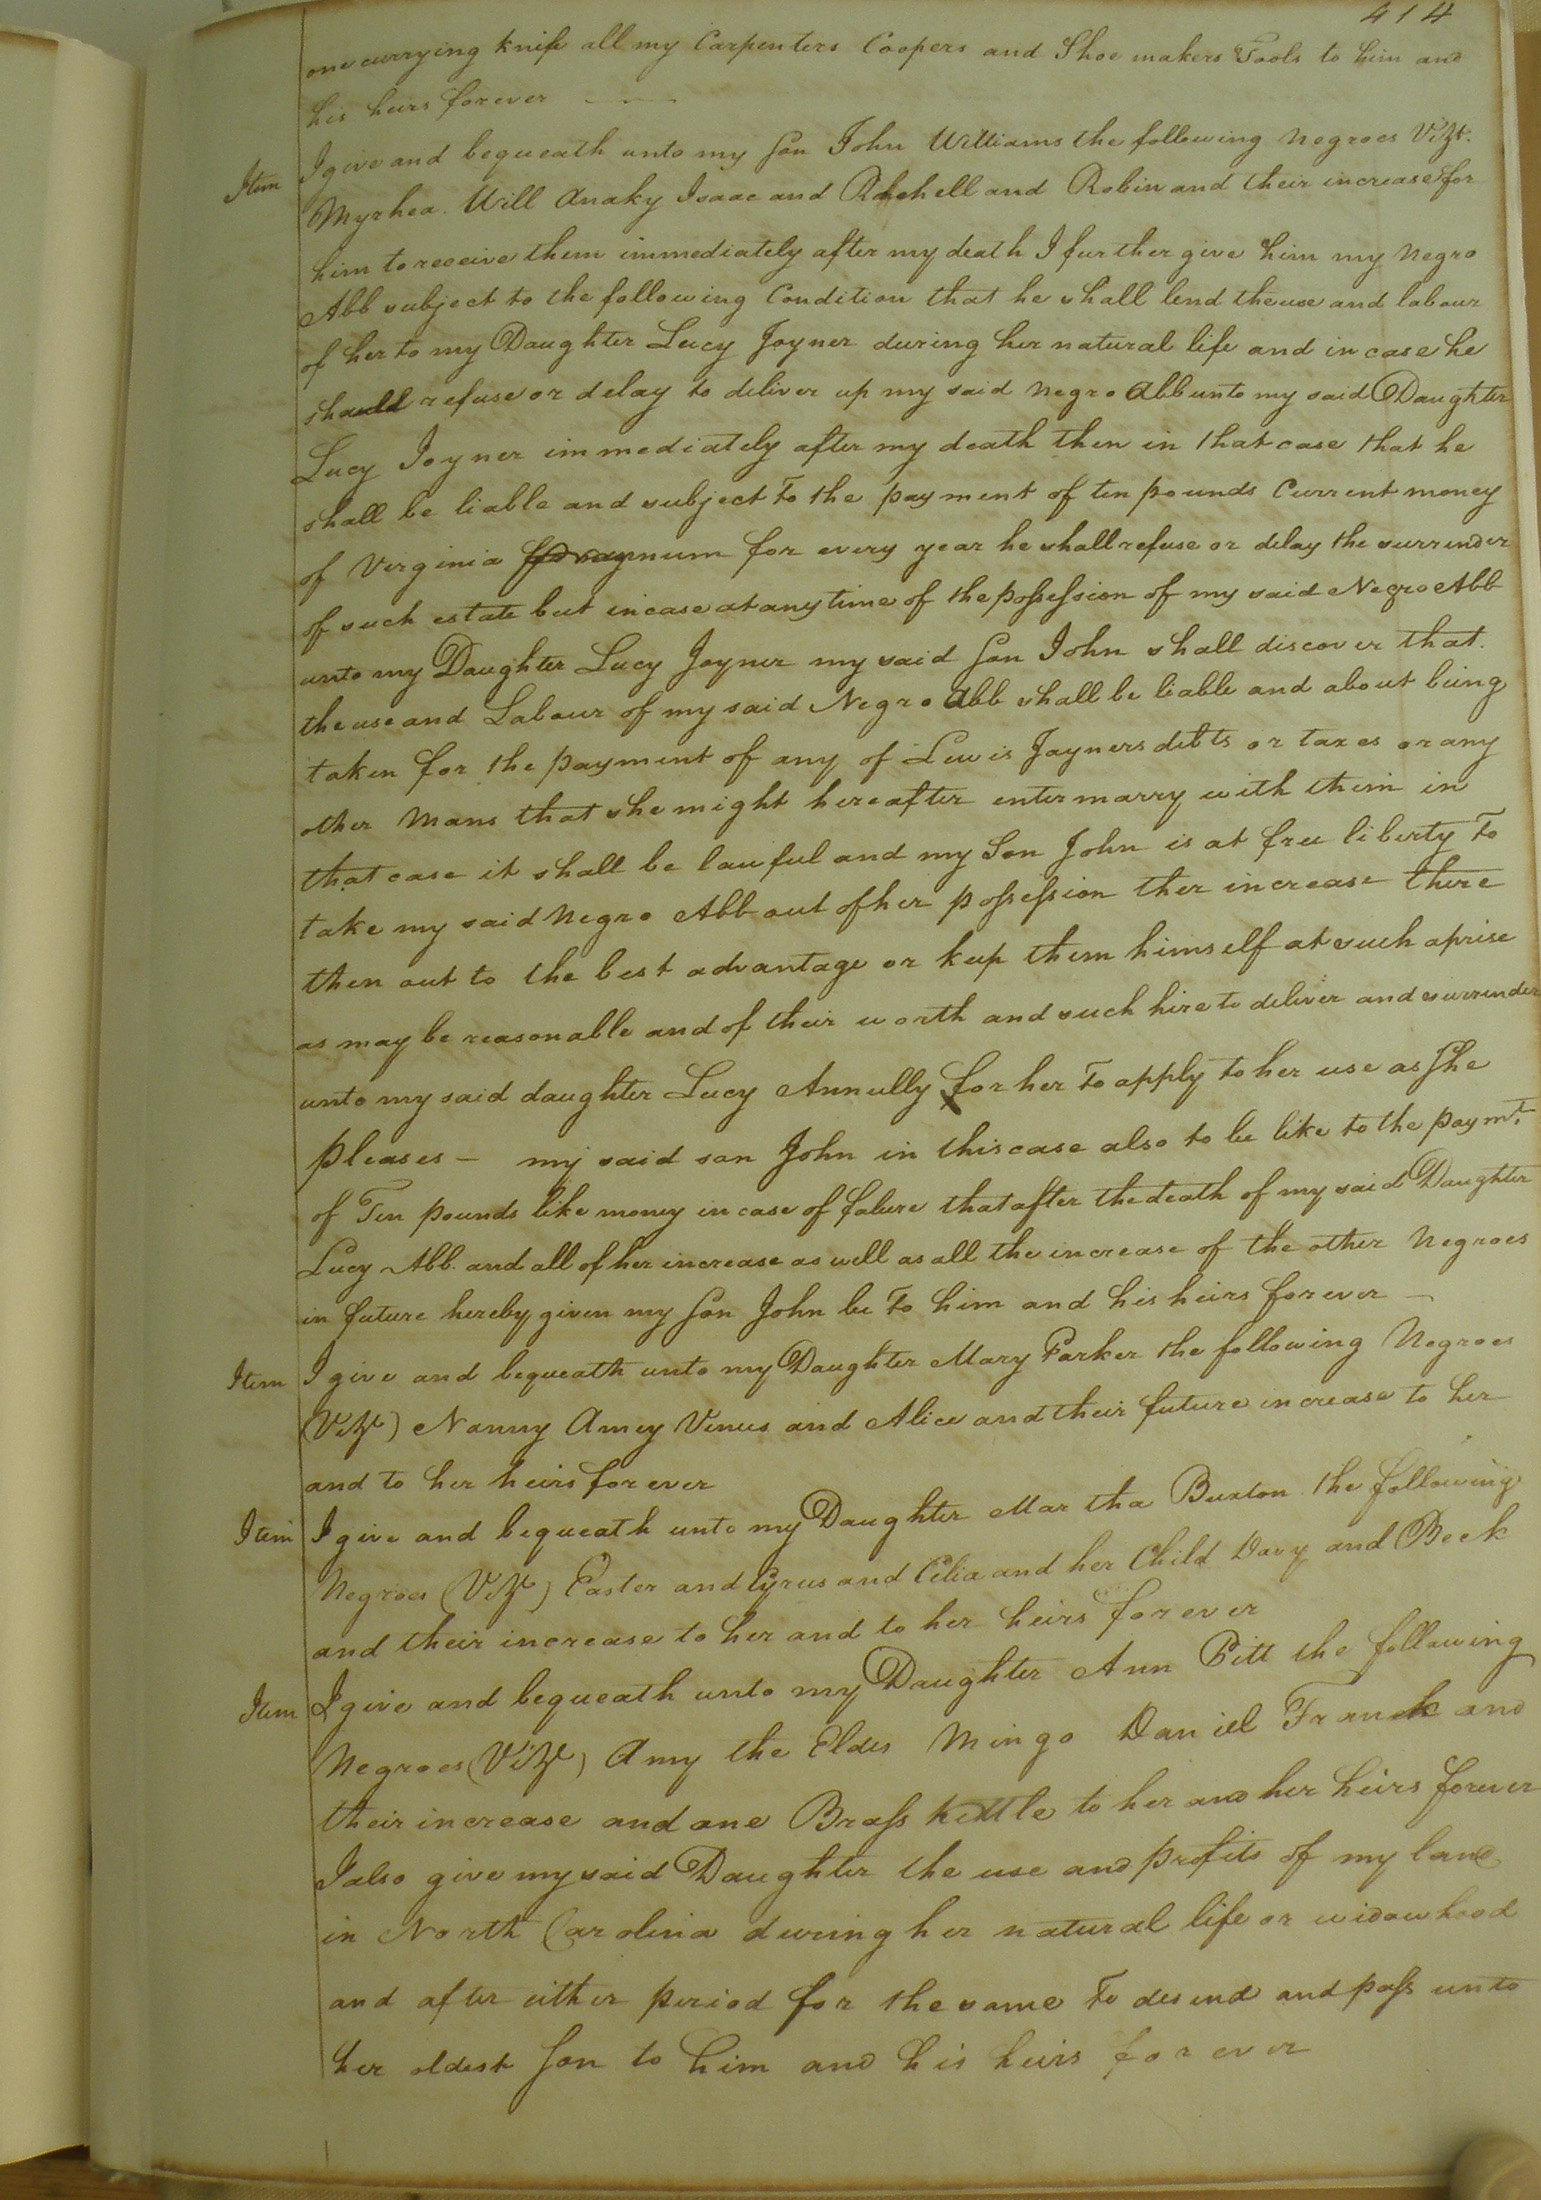 414
one currying knife all my Carpenters Coopers and Shoe makers Tools to him and
his heirs forever
Item I give and bequeath unto my son John Williams the following Negroes Vizt.
Myrhea. Will Anaky Isaac and Rachell and Robin and their increase for
him to receive them immediately after my death I further give him my Negro
Abb subject to the following Condition that he shall lend the use and labour
of her to my Daughter Lucy Joyner during her natural life and in case he
should refuse or delay to deliver up my said negro Abb unto my said Daughter
Lucy Joyner immediately after my death then in that case that he
shall be liable and subject To the payment of ten pounds Current money
of Virginia annum for every year he shall refuse or delay the surrender
of such estate but in case at any time of the possession of my said Negro Abb
unto my Daughter Lucy Joyner my said son John shall discover that.
the use and Labour of my said Negro Abb shall be liable and about being
taken for the payment of any of Lewis Joyners debts or taxes or any
other Mans that she might hereafter entermarry with them in
that case it shall be lawful and my Son John is at free liberty To
take my said Negro Abb out of her possession ther increase there
then out to the best advantage or keep them himself at such aprise
as may be reasonable and of their worth and such hire to deliver and surrender
unto my said daughter Lucy Annully for her To apply to her use as She
pleases — my said son John in this case also to be like to the paymt.
of Ten pounds like money in case of falure that after the death of my said Daughter
Lucy Abb. and all of her increase as well as all the increase of the other Negroes
in future hereby given my son John be To him and his heirs forever —
Item I give and bequeath unto my Daughter Mary Parker the following Negroes
(Vizt) Nanny Amey Venus and Alice and their future increase to her
and to her heirs forever
Item I give and bequeath unto my Daughter Martha Buxton the following
Negroes (Vizt) Easter and Cyrus and Celia and her Child Davy and Beck
and their increase to her and to her heirs forever
Item I give and bequeath unto my Daughter Ann Pitt the following
Negroes (Vizt) Amy the Elder Mingo Daniel Franck and
their increase and one Brass kettle to her and her heirs forever
I also give my said Daughter the use and profits of my land
in North Carolina during her natural life or widowhood
and after either period for the same To desend and pass unto
her oldest son to him and his heirs forever